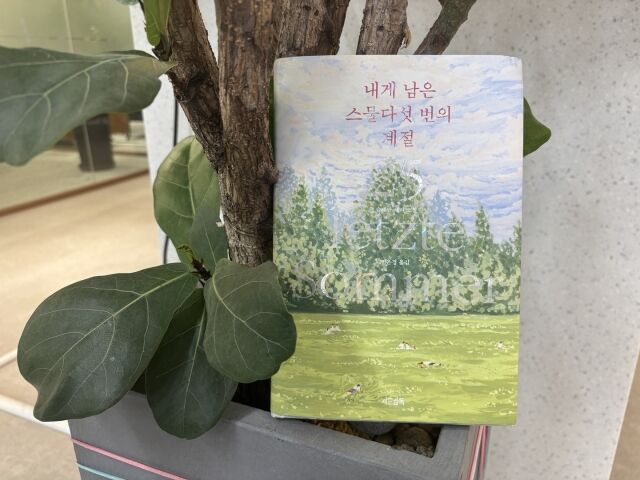 내게 남은
스물다섯 번의
계절
25
letzte
Sommer